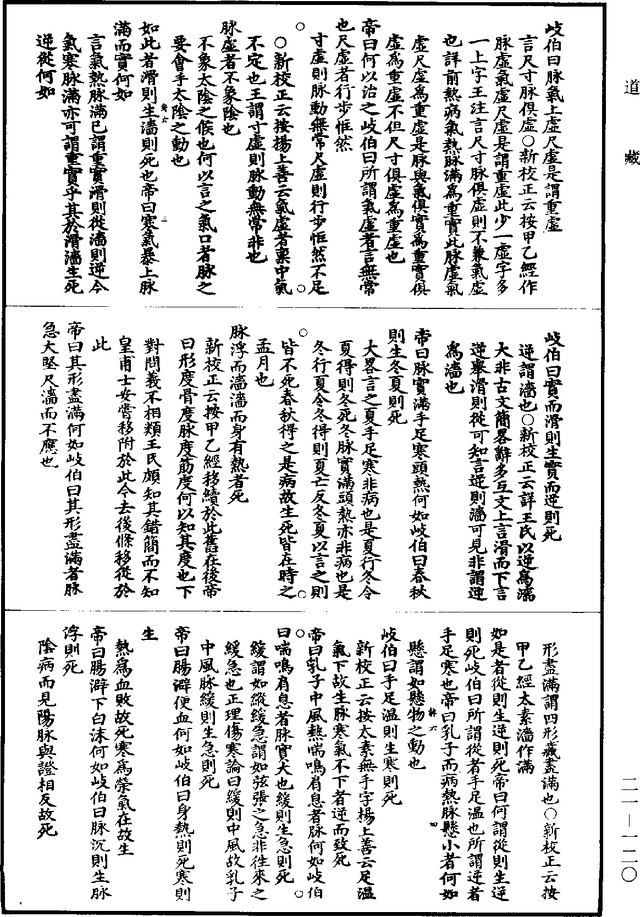 道藏
岐伯曰脉氣上虛尺虛是謂重虛
言尺寸脉俱虛〇新校正云按甲乙經作
脉虛氣虛尺虛是謂重虛此少一虛字多
一上字王注言尺寸脉俱虛則不兼氣虛
也詳前熱病氣熱脉滿為重實此脉虛氣
虛尺虛為重虛是脉與氣俱實為重實俱
虛為重虛不但尺寸俱虛為重虛也
帝曰何以治之岐伯曰所謂氣虛者言無常
也尺虛者行步恇然
寸虛則脉動無常尺虛則行步恇然不足
〇新校正云按楊上善云氣虛者膻中氣
不定也王謂寸虛則脉動無常非也
脉虛者不象陰也
不象太陰之候也何以言之氣口者脉之
要會手太陰之動也
如此者滑則生濇則死也帝曰寒氣暴上脉
滿而實何如
言氣熱脉滿已謂重實滑則從濇則逆今
氣寒脉滿亦可謂重實乎其於滑濇生死
逆從何如
岐伯曰實而滑則生實而逆則死
逆謂濇也〇新校正云詳王氏以逆為濇
大非古文簡畧辭多互文上言滑而下言
逆舉滑則從可知言逆則濇可見非謂逆
為濇也
帝曰脉實滿手足寒頭熱何如岐伯曰春秋
則生冬夏則死
大畧言之夏手足寒非病也是夏行冬令
夏得則冬死冬脉實滿頭熱亦非病也是
冬行夏令冬得則夏亡反冬夏以言之則
皆不死春秋得之是病故生死皆在時之
孟月也
脉浮而濇濇而身有熱者死
新校正云按甲乙經移續於此舊在後帝
曰形度骨度脉度筋度何以知其度也下
對問義不相類王氏頗知其錯簡而不知
皇甫士安嘗移附於此今去後條移從於
此
帝曰其形盡滿何如岐伯曰其形盡滿者脉
急大堅尺濇而不應也
形盡滿謂四形藏盡滿也〇新校正云按
甲乙經太素濇作滿
如是者從則生逆則死帝曰何謂從則生逆
則死岐伯曰所謂從者手足溫也所謂逆者
手足寒也帝曰乳子而病熱脉懸小者何如
懸謂如懸物之動也
岐伯曰手足溫則生寒則死
新校正云按太素無手字楊上善云足溫
氣下故生脉寒氣不下者逆而致死
帝曰乳子中風熱喘鳴肩息者脉何如岐伯
曰喘鳴肩息者脉實大也緩則生急則死
緩謂如縱緩急謂如弦張之急非往來之
緩急也正理傷寒論曰緩則中風故乳子
中風脉緩則生急則死
帝曰腸澼便血何如岐伯曰身熱則死寒則
生
熱為血敗故死寒為榮氣在故生
帝曰腸澼下白沫何如岐伯曰脉沉則生脉
浮則死
陰病而見陽脉與證相反故死
二一—一二〇